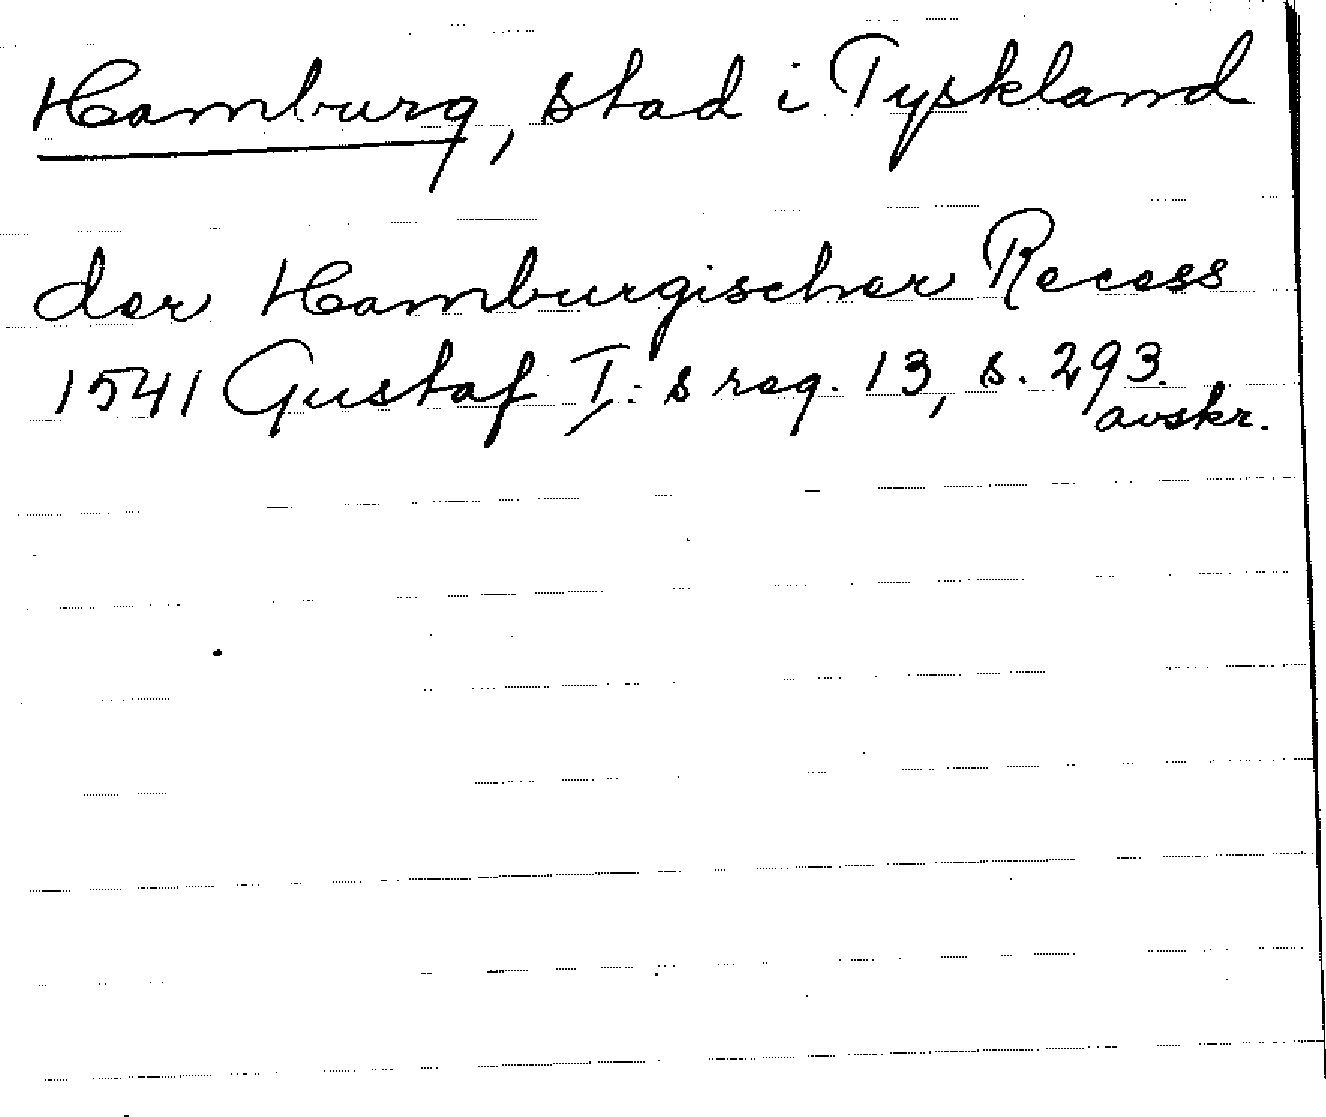 Hamburg, stad i Tyskland
der Hamburgischer Recess
1541 Gustaf I:s reg. 13, s. 293.
avskr.